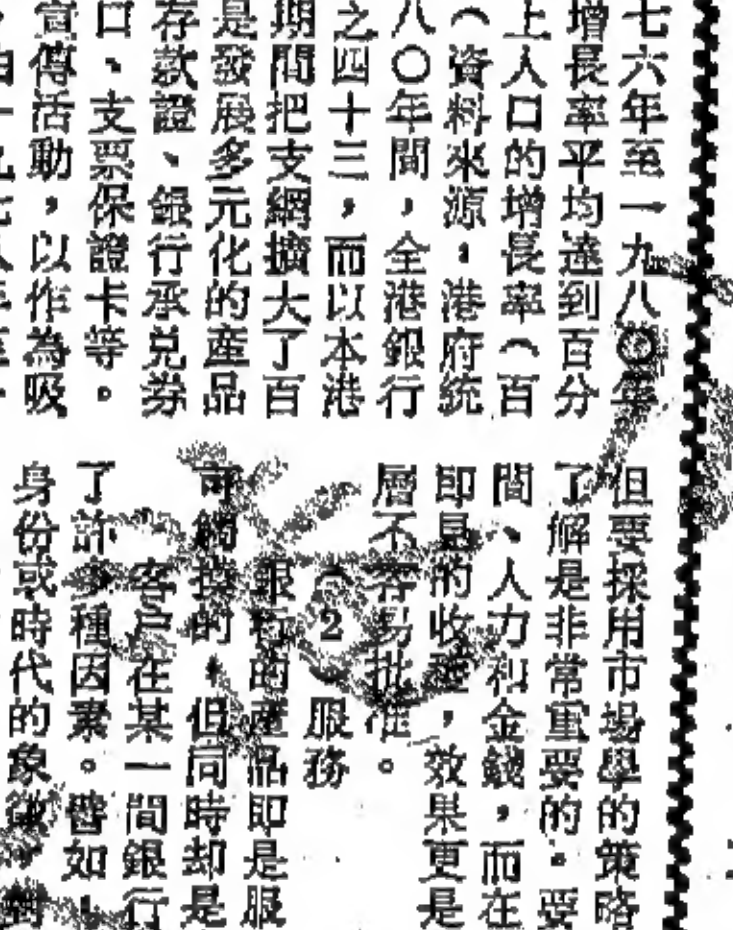 七六年至一九八〇年
增長率平均達到百分
上人口的增長率（百
（資料來源：港府統
八〇年間，全港銀行
之四十三，而以本港
期間把支網擴大了百
是發展多元化的產品
存款證、銀行承兌券
口、支票保證卡等。
宣傳活動，以作為吸
但要採用市場學的策略
了解是非常重要的。要
間、人力和金錢，而在
即見的收穫，效果更是
層不容易批准。
（2）服務
銀行的產品即是服
可觸摸的，但同時却是
客戶在某一間銀行
了許多種因素。譬如：
身份或時代的象徵，對